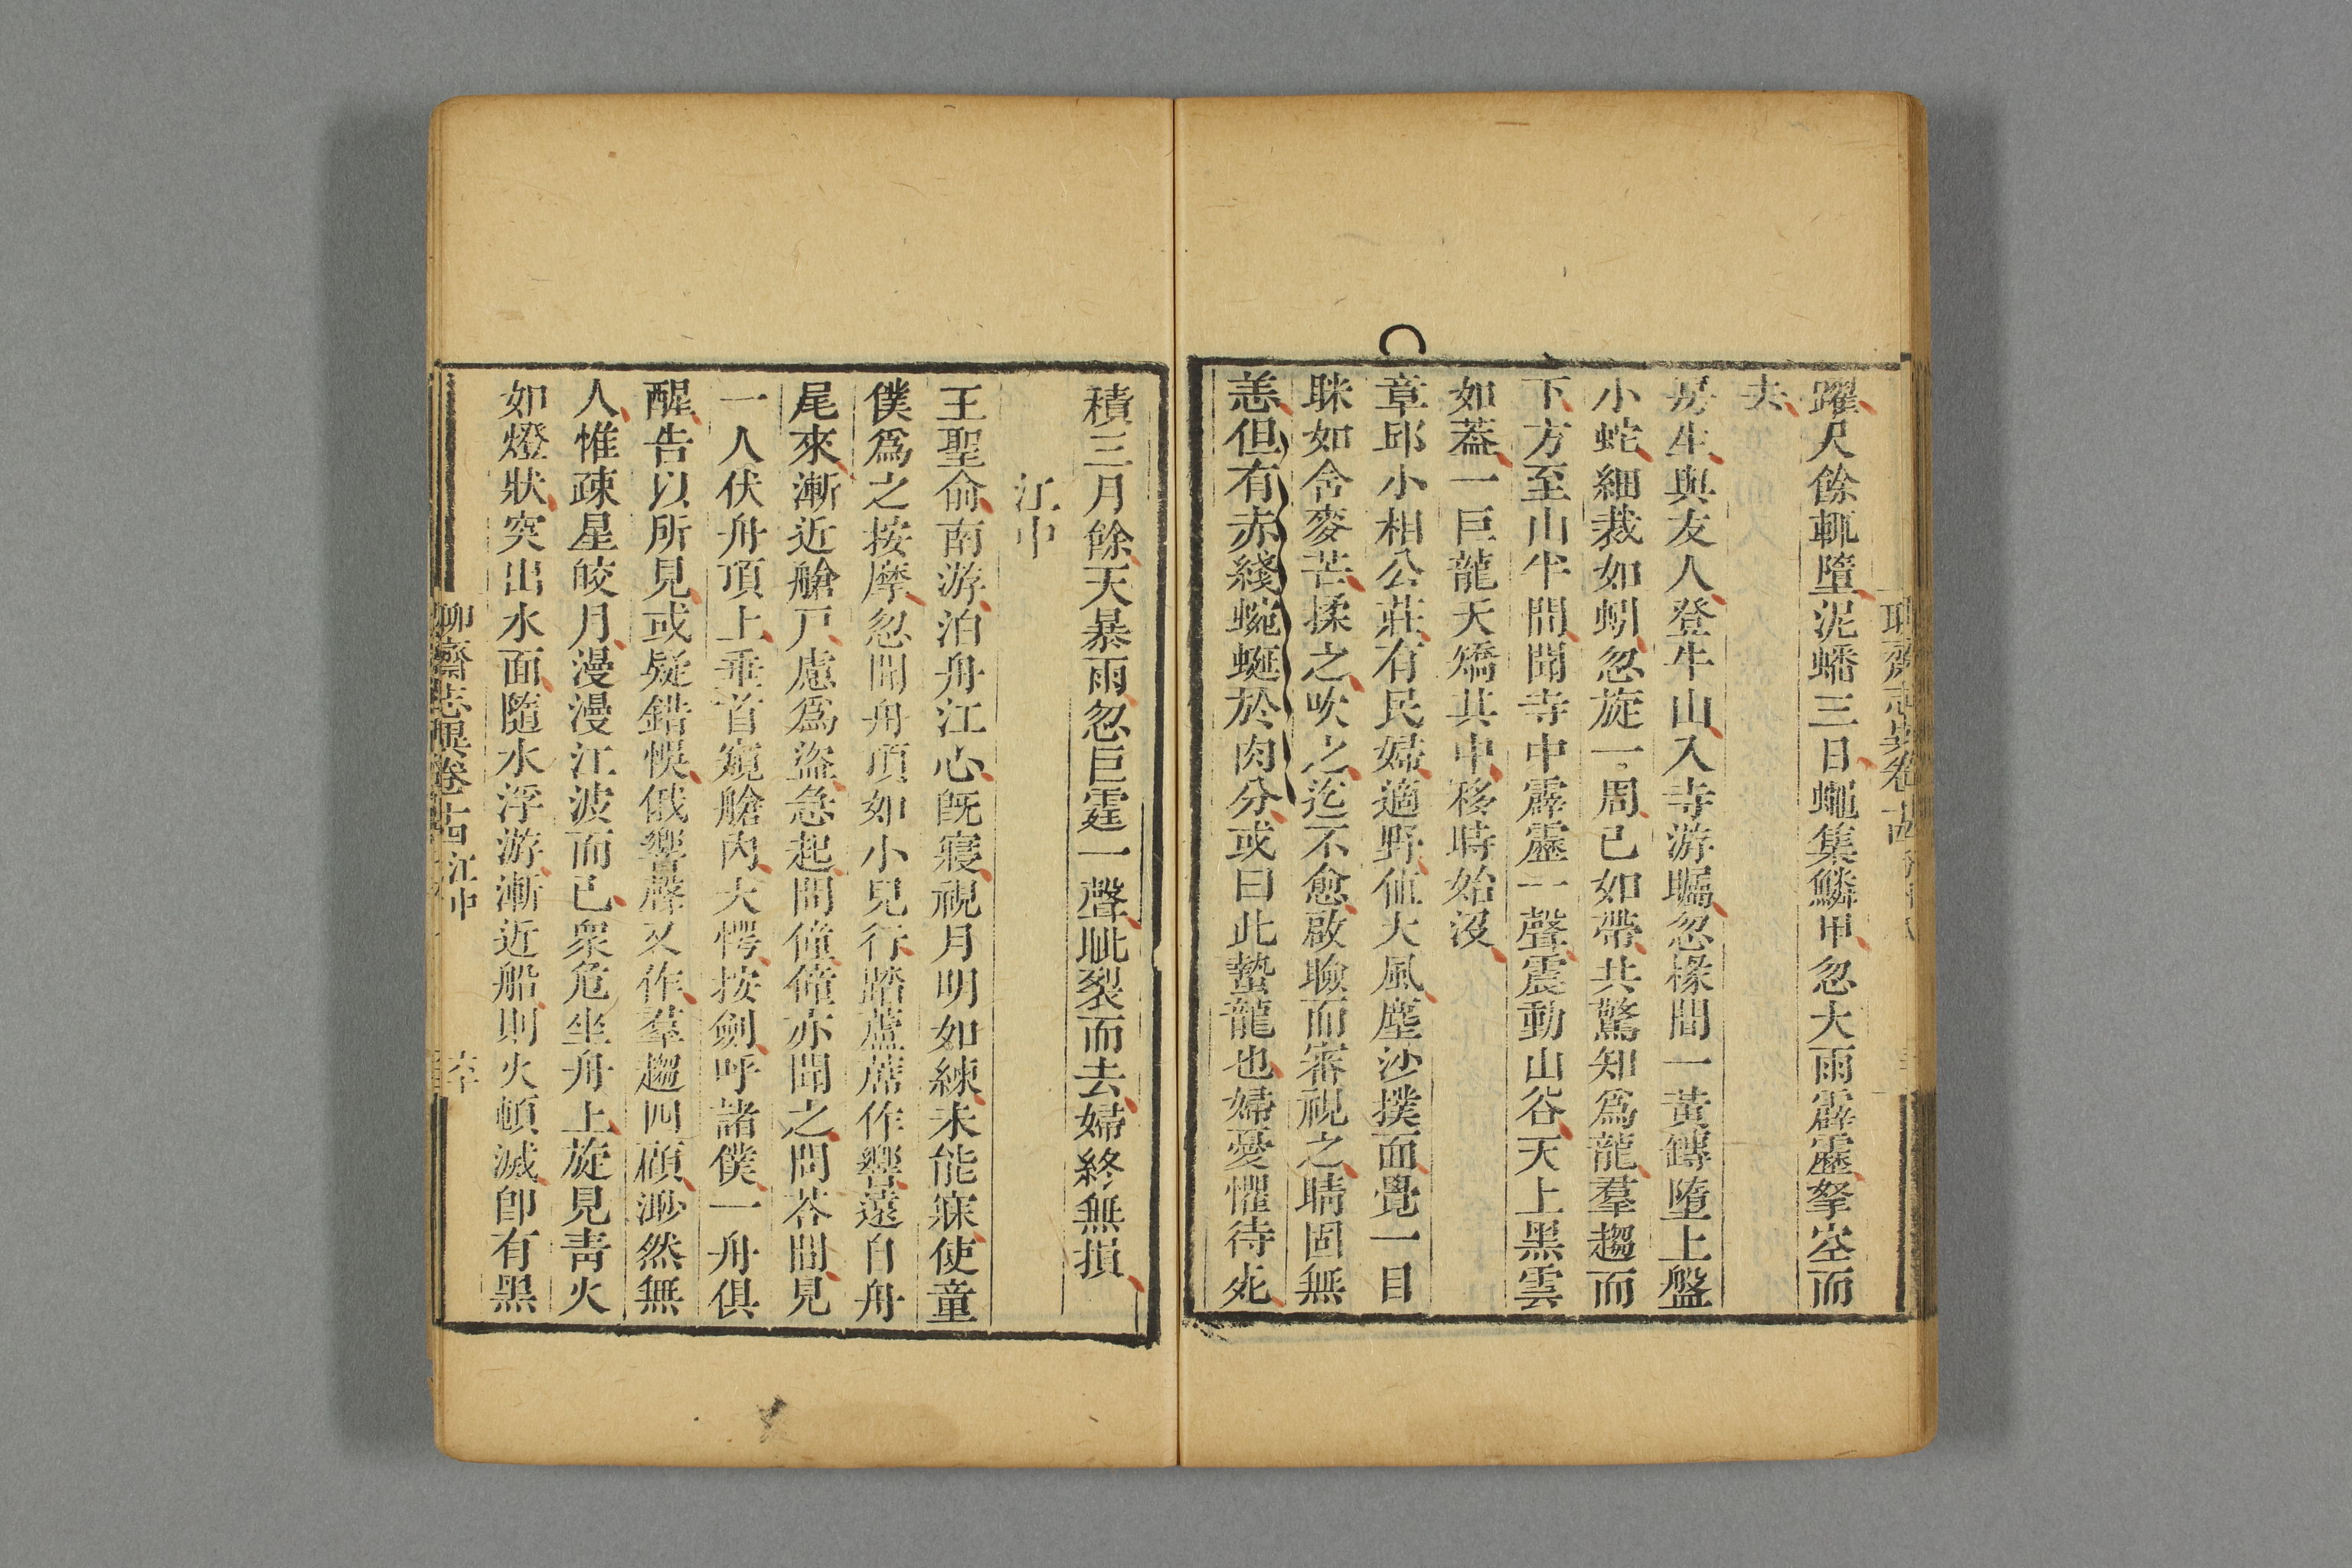 躍尺餘輒墮泥蟠三日蠅集鱗甲忽大雨霹靂拏空而
去
房生與友人登牛山入寺游矚忽椽間一黃鏄墮上盤
小蛇細裁如蚓忽旋一周已如帶共驚知爲龍羣趨而
下方至山半間聞寺中霹靂一聲震動山谷天上黑雲
如蓋一巨龍夭矯其中移時始沒
章邱小相公莊有民婦適野値大風塵沙撲面覺一目
眯如含麥芒揉之吹之迄不愈啟瞼而審視之睛固無
恙但有赤綫蜿蜒於肉分或曰此蟄龍也婦憂懼待死
積三月餘天暴雨忽巨霆一聲眦裂而去婦終無損
江中
王聖俞南游泊舟江心旣寢視月明如練未能寐使童
僕爲之按摩忽聞舟頂如小兒行踏蘆蓆作響遠自舟
尾來漸近艙戸慮爲盜急起問僮僮亦聞之問答間見
一人伏舟頂上垂首窺艙內大愕按劍呼諸僕一舟俱
醒告以所見或疑錯悞俄響聲又作羣趨四顧渺然無
人惟疎星皎月漫漫江波而已衆危坐舟上旋見靑火
如燈狀突出水面隨水浮游漸近船則火頓滅卽有黑
聊齋志異卷十四 江中